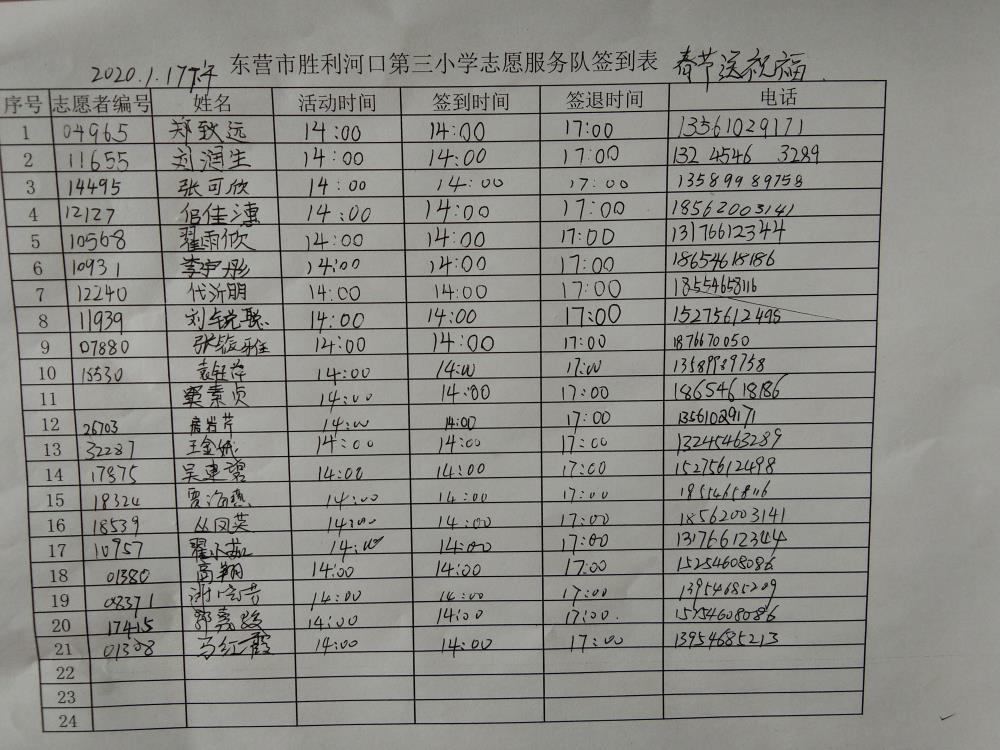 2020.1.17下午 东营市胜利河口第三小学志愿服务队签到表 春节送祝福
序号 志愿者编号 姓名 活动时间 签到时间 签退时间 电话
1 04965 郑致远 14:00 14:00 17:00 13561029171
2 11655 刘润生 14:00 14:00 17:00 132 4546 3289
3 14495 张可欣 14:00 14:00 17:00 13589989758
4 12127 侣佳潓 14:00 14:00 17:00 18562003141
5 10568 翟雨欣 14:00 14:00 17:00 13176612344
6 10931 李宇彤 14:00 14:00 17:00 18654618186
7 12240 代沂朋 14:00 14:00 17:00 18554658116
8 11939 刘锐聪 14:00 14:00 17:00 15275612498
9 07880 张雅 14:00 14:00 17:00 1876670050
10 18530 袁钰萍 14:00 14:00 17:00 13589989758
11 窦素贞 14:00 14:00 17:00 18654618186
12 26703 房岩芹 14:00 14:00 17:00 13561029171
13 32287 王金 14:00 14:00 17:00 13245463289
14 17875 吴建 14:00 14:00 17:00 15275612498
15 18324 贾海燕 14:00 14:00 17:00 1855465816
16 18539 丛凤英 14:00 14:00 17:00 18562003141
17 10957 翟小茹 14:00 14:00 17:00 13176612344
18 01380 高翔 14:00 14:00 17:00 15254608086
19 08371 14:00 14:00 17:00 13954685209
20 17415 郭嘉骏 14:00 14:00 17:00. 15254608086
21 01308 马红霞 14:00 14:00 17:00 13954685213
22
23
24